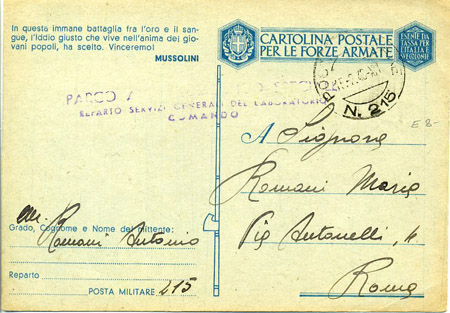 In questa immane battaglia fra l'oro e il san-
gue, l'Iddio giusto che vive nell'anima dei gio-
vani popoli, ha scelto. Vinceremo!
MUSSOLINI
CARTOLINA POSTALE
PER LE FORZE ARMATE
ESENTE DA
TASSA PER
L'ITALIA
E SVE COLONIE
PARCO
REPARTO SERVIZI GENERALI DEL LABORATORIO
COMANDO
N. 215
E 8-
A Signora
Romani Maria
Via Antonelli, 4
Roma
Romani Antonio
Grado, Cognome e Nome del mittente:
Reparto
POSTA MILITARE 215